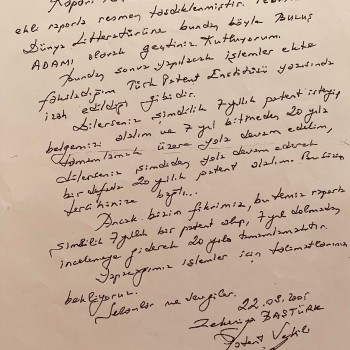 ekli raporla resmen tasdiklenmiştir.
Dünya Litteratürüne bundan böyle BULUŞ
ADAMI olarak geçtiniz Kutluyorum.
Bundan sonra yapılacak işlemler ekte
Türk Patent Enstitüsü yazısında
izah edildiği gibidir.
Dilerseniz şimdilik 7 yıllık patent isteyip
belgemizi alalım ve 7 yıl bitmeden 20 yıla
tamamlamak üzere yola devam edelim,
dilerseniz şimdiden yola devam ederek
bir defada 20 yıllık patent alalım. Bu sizin
tercihinize bağlı...
Ancak bizim fikrimiz, bu temiz raporla
şimdilik 7 yıllık bir patent alıp, 7 yıl dolmadan
incelemeye giderek 20 yıla tamamlamaktır.
Yapacağımız işlemler için talimatlarınızı
bekliyoruz.
Selamlar ve sevgiler.
22.08.2005
Zekeriya BAŞTÜRK
Patent Vekili